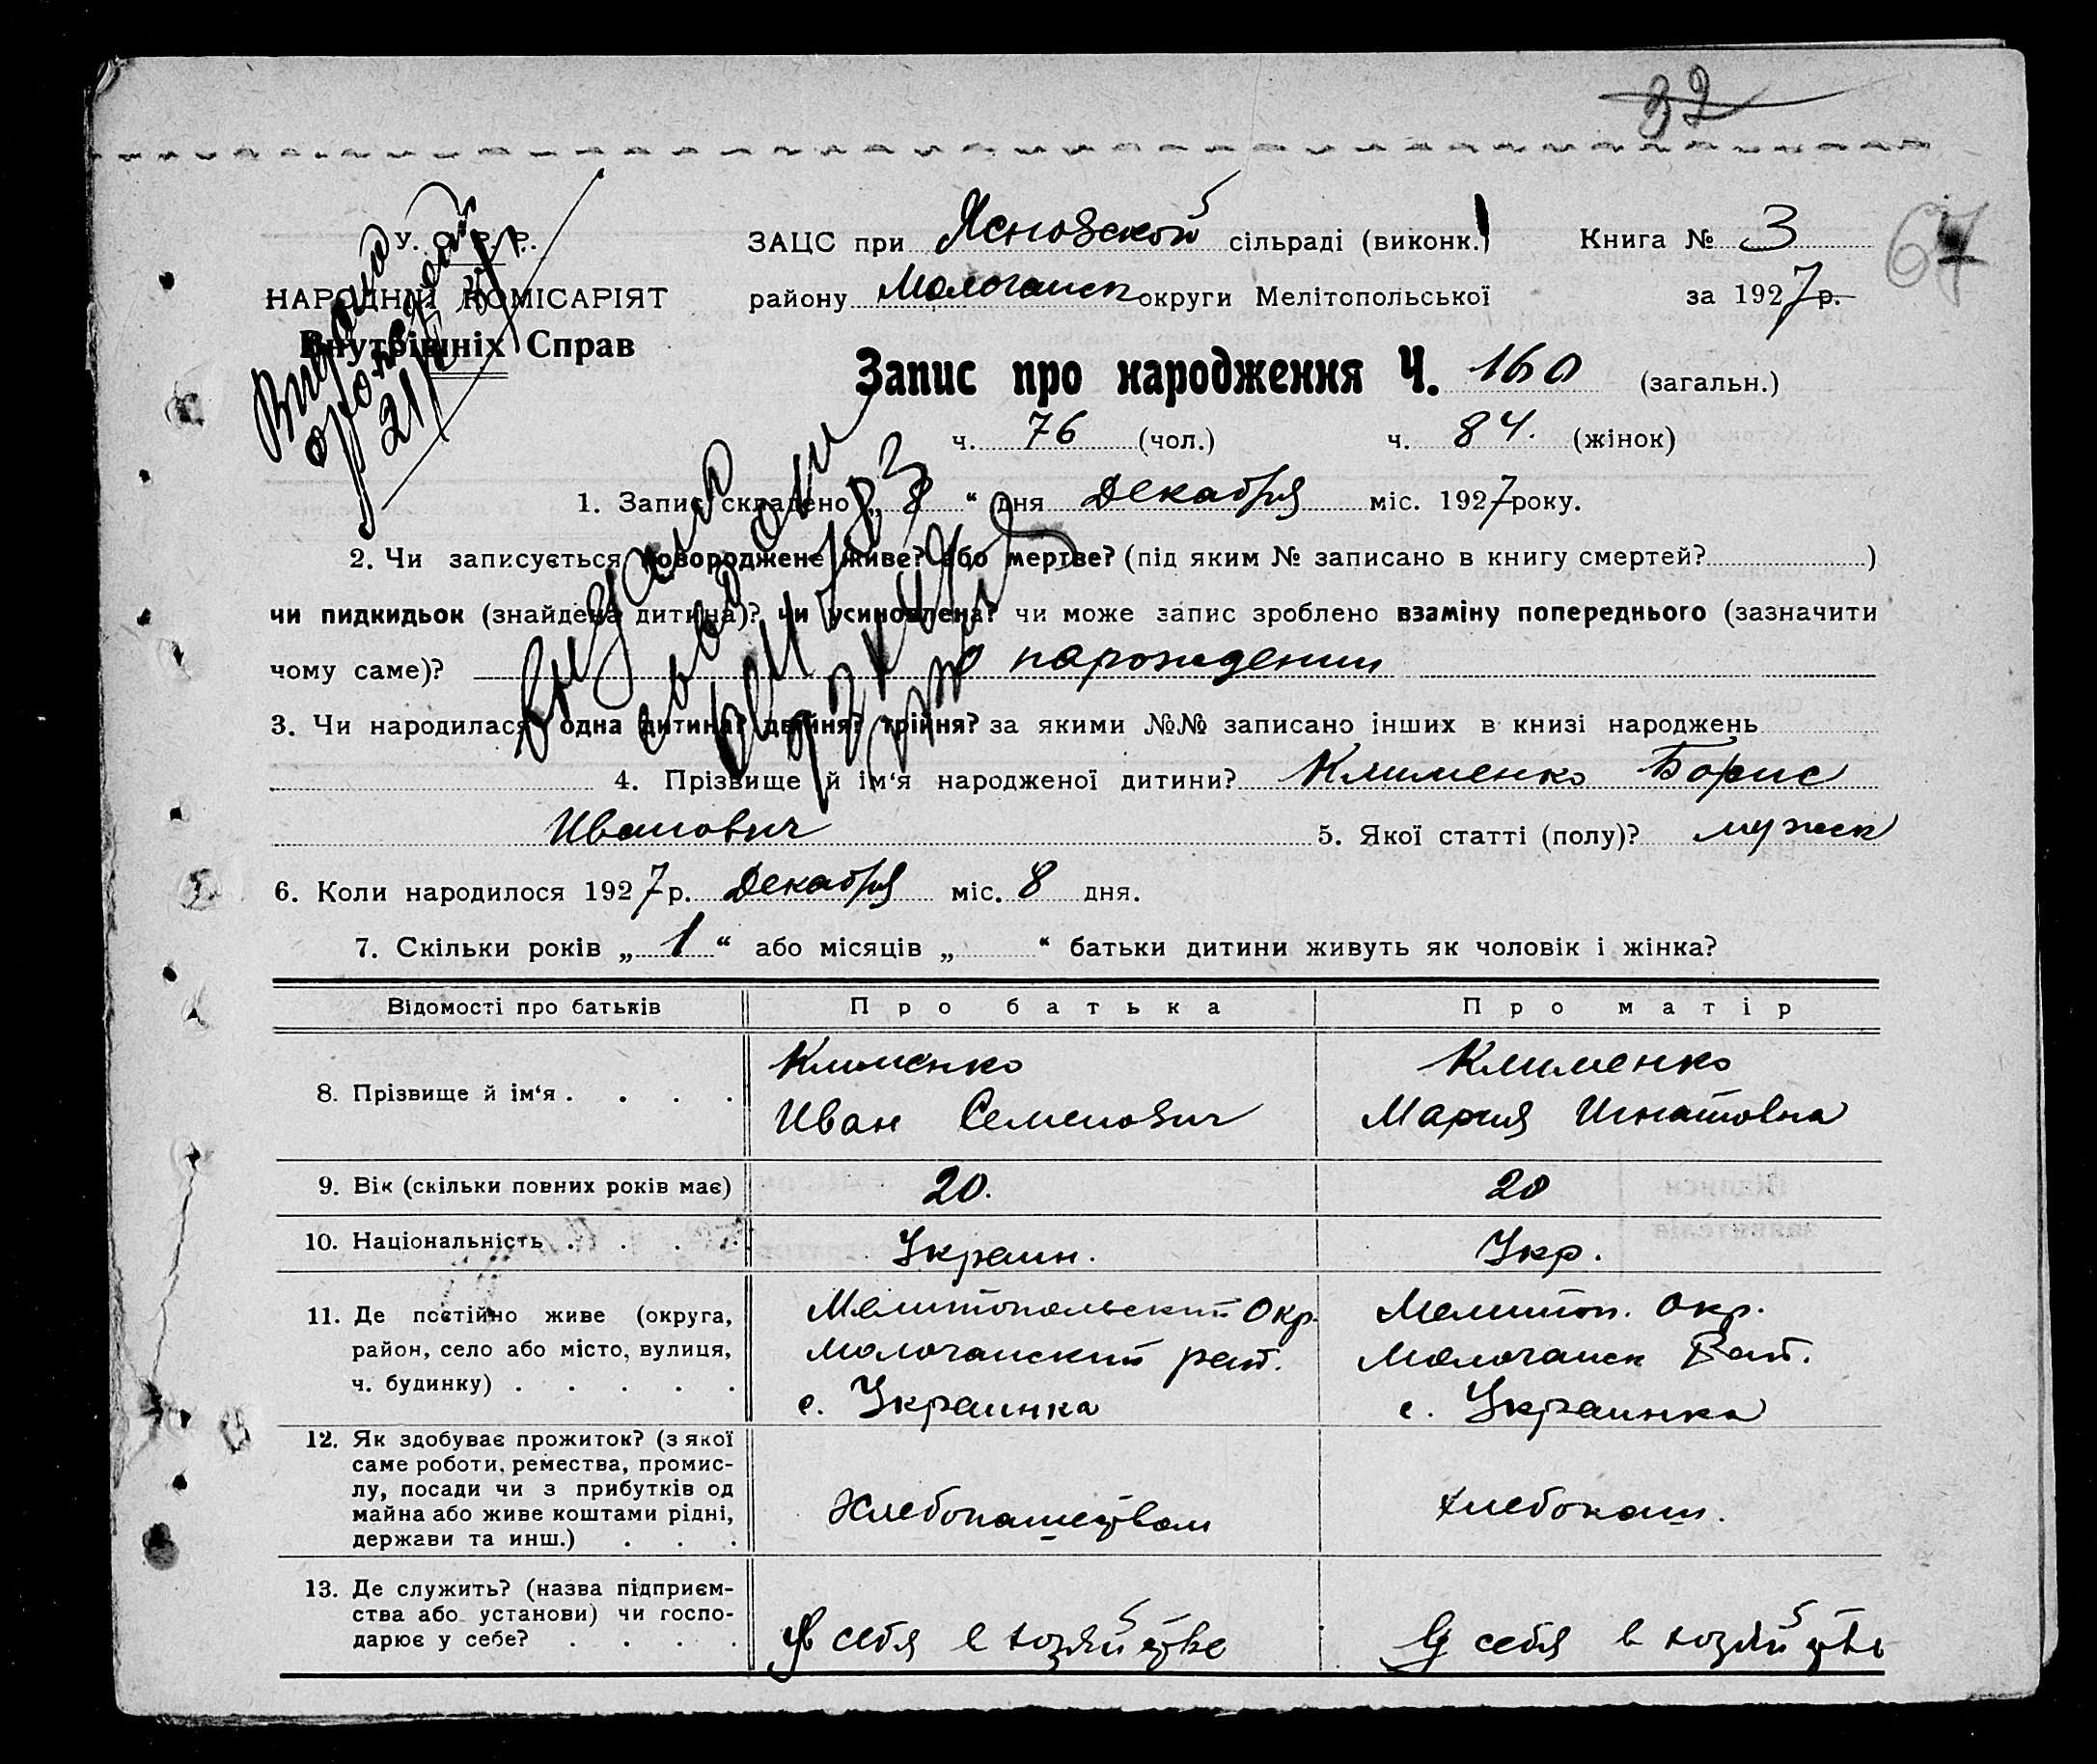 32
67
У. С. Р. Р.
НАРОДНІЙ КОМІСАРІЯТ
Внутрішніх Справ
ЗАЦС при Ясновской сільраді (виконк.)
Книга № 3
району Молочанск округи Мелітопольської
за 1927 р.
Запис про народження Ч. 160 (загальн.)
ч. 76 (чол.) ч. 84. (жінок)
1. Запис складено „ 8 “ дня Декабря міс. 1927 року.
2. Чи записується новороджене живе? або мертве? (під яким № записано в книгу смертей? )
чи пидкидьок (знайдена дитина)? чи усиновлена? чи може запис зроблено взаміну попереднього (зазначити
чому саме)? о нарождении
3. Чи народилася одна дитина? двійня? трійня? за якими №№ записано інших в книзі народжень
4. Прізвище й ім‘я народженої дитини? Клименко Борис
Иванович 5. Якої статті (полу)? мужск
6. Коли народилося 1927 р. Декабря міс. 8 дня.
7. Скільки років „ 1 “ або місяців „ “ батьки дитини живуть як чоловік і жінка?
Відомості про батьків Про батька Про матір
8. Прізвище й ім‘я . . . .
Клименко
Иван Семенович
Клименко
Мария Игнатовна
9. Вік (скільки повних років має) 20. 20
10. Національність . . . . Украин. Укр.
11. Де постійно живе (округа,
район, село або місто, вулиця,
ч. будинку) . . . . .
Мелитопольский Окр.
Молочанский рай.
с. Украинка
Мелитоп. Окр.
Молочанск Рай.
с. Украинка
12. Як здобуває прожиток? (з якої
саме роботи, ремества, промис-
лу, посади чи з прибутків од
майна або живе коштами рідні,
держави та инш.) . . .
Хлебопашеством
хлебопаш.
13. Де служить? (назва підприєм-
ства або установи) чи госпо-
дарює у себе? . . . .
У себя в хозяйстве
У себя в хозяйстве